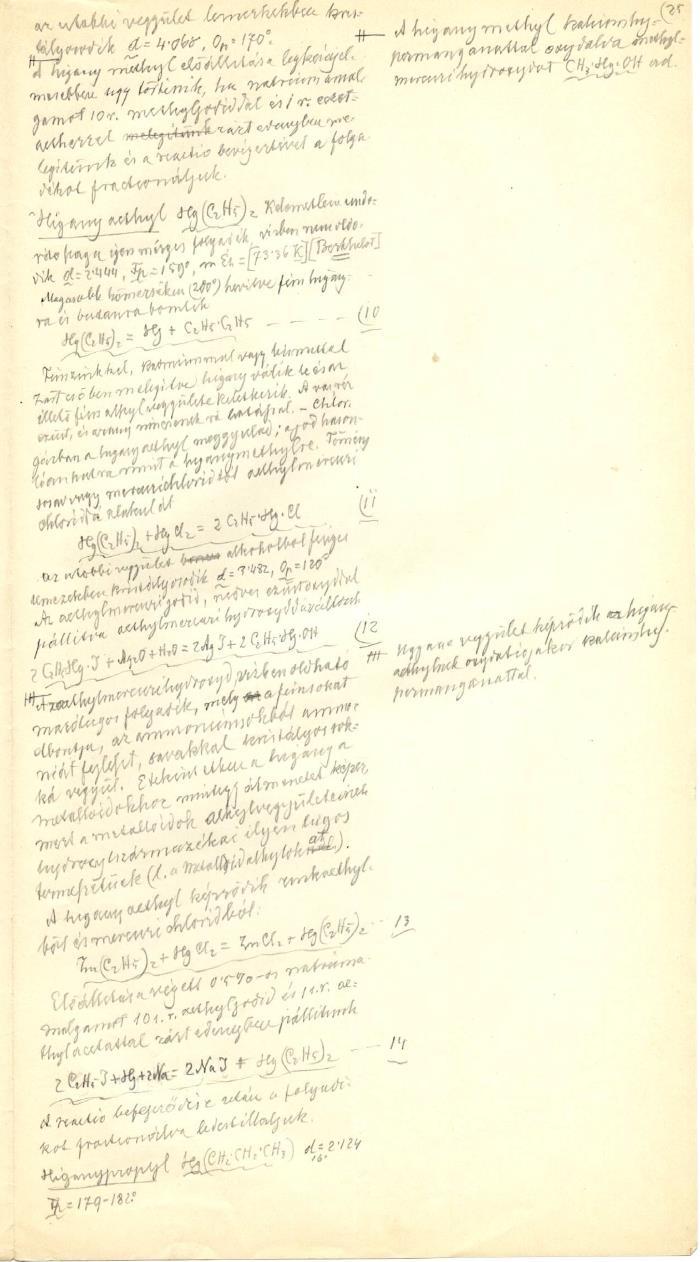 az utóbbi vegyület lemezkékben kris-
tályosodik d=4·068, Op=170°.
A higany methyl előállitása legkönnyel-
mesebben ugy történik, ha natriumamal-
gamot 10 r. methyljodiddal és 1 r. ecet-
aetherrel melegitünk zárt edényben me-
legitünk és a reactio bevégeztével a folya-
dékot fractionáljuk.
Higany aethyl Hg(C2H5)2 Kellemetlen undo-
ritó szagu igen mérges folyadék, vizben nem oldó-
dik d=2·444, Fp=159°, m Éh=[733·6 K][Berthelot]
Magasabb hőmérséken (200°) hevitve fém higany-
ra és butanra bomlik
Hg(C2H5)2 = Hg + C2H5·C2H5 - - - - (10
Fémzinkkel, kadmiummal vagy bizmuttal
zárt csőben melegitve higany válik le és az
illető fém alkyl vegyülete keletkezik. A vas, réz
ezüst, és arany nincsenek rá hatással. – Chlor
gázban a higany aethyl meggyulad; a jod hason-
lóan hat rá mint a higanymethylre. Tömény
sósav vagy mercurichloridtól aethylmercuri
chloriddá alakul át
Hg(C2H5)2 + HgCl2 = 2 C2H5·Hg·Cl (11
az utóbbi vegyület alkoholból fényes
lemezekben kristályosodik d=3·482, Op=120°
Az aethylmercurijodid, nedves ezüstoxyddal
aethylmercurihydroxyddá változik
2 C2H5·Hg·J + Ag2O + H2O = 2 Ag J + 2 C2H5·Hg·OH (12
Az aethylmercurihydroxyd, vizben oldható
marólugos folyadék, mely a fémsókat
elbontja, az ammoniumsókból ammo-
niát fejleszt, savakkal kristályos sók-
ká vegyül. Eszerint ebben a higany a
metalloidokhoz mintegy átmenetet képez,
mert a metalloidok alkylvegyületeinek
hydroxylszármazékai ilyen lúgos
természetüek (l. a Metalloidalkyloknál).
A higany aethyl képződik zinkaethyl-
ből és mercurichloridból:
Zn(C2H5)2 + HgCl2 = ZnCl2 + Hg(C2H5)2 - - 13
Előállitása végett 0·5%-os natriuma-
malgamot 10 s. r. aethyljodid és 1 s. r. ae-
thylacetattal zárt edényben
2 C2H5·J + Hg + 2Na = 2 NaJ + Hg(C2H5)2 - - - 14
A reactio befejeződése után a folyadé-
kot fractionálva ledestilláljuk.
Higanypropyl Hg(CH2·CH2·CH3) d=2·124
16°
Fp=179-182°
(25
A higany methyl kaliumhy-
permanganattal oxydálva methyl-
mercurihydroxydot CH3·Hg·OH ad.
Ugyane vegyület képződik a higany-
aethylnek oxydatiojakor kaliumhy-
permanganattal.